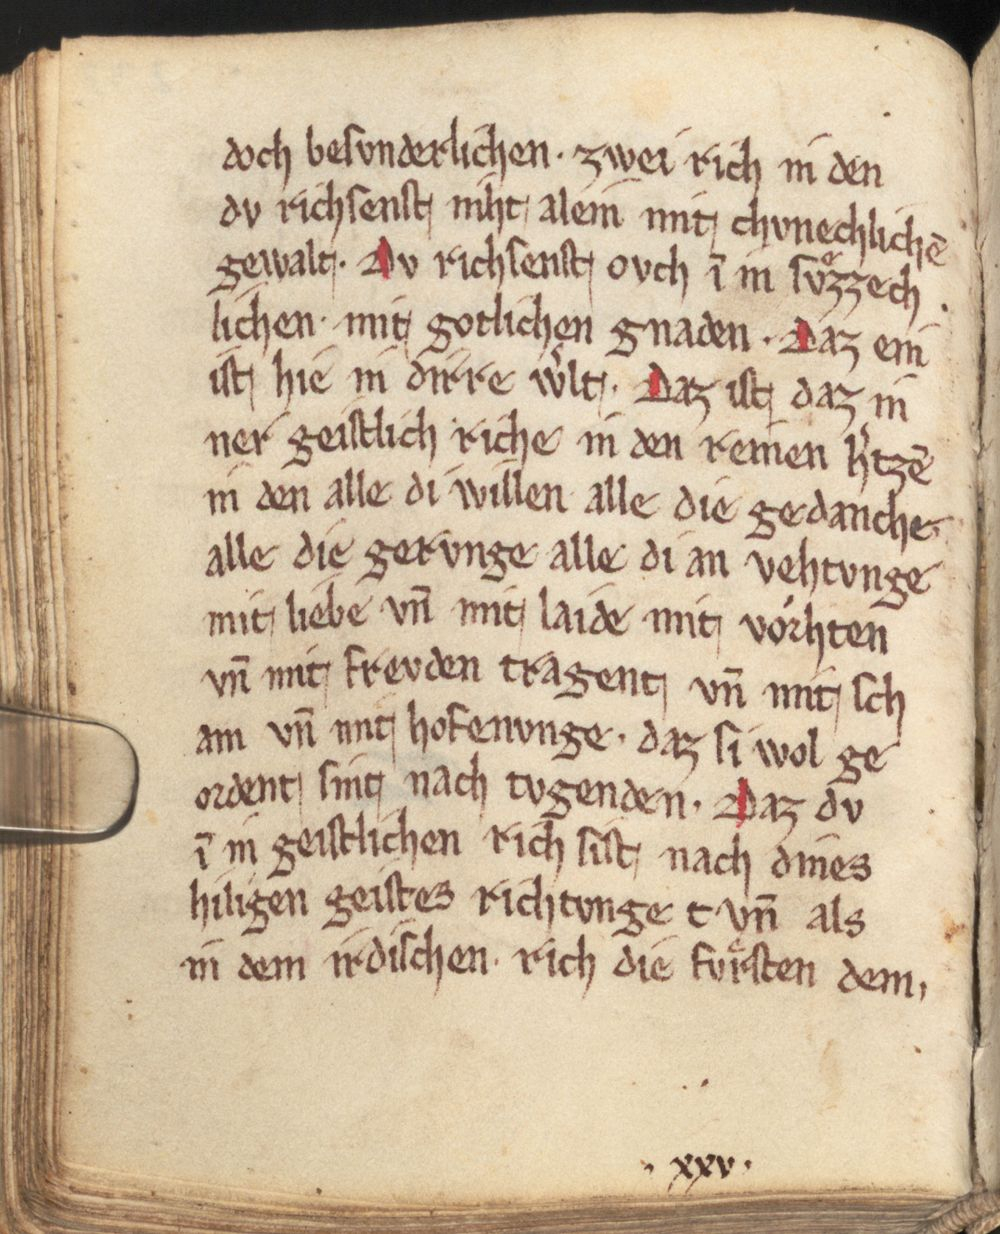 doch besvnderlichen· zwei rich in den
dv richsenst niht alein mit chvnechlichē
gewalt· Dv richsenst ovch ī in svͤzzech
lichen· mit gotlichen gnaden· Daz ein
ist hie in dirre w̓lt· Daz ist daz in
ner geistlich riche in den reinen h̓tzē
in den alle di willen alle die gedanche
alle die gervnge alle di an vehtvnge
mit liebe vn̄ mit laide mit vórhten
vn̄ mit frevden tragent vn̄ mit sch
am vn̄ mit hofenvnge· daz si wol ge
ordent sint nach tvgenden· Daz dv
ī in geistlichen rich sist nach dines
hiligen geistes richtvnge t vn̄ als
in dem irdischen· rich die fvͤrsten dem,
· xxv ·